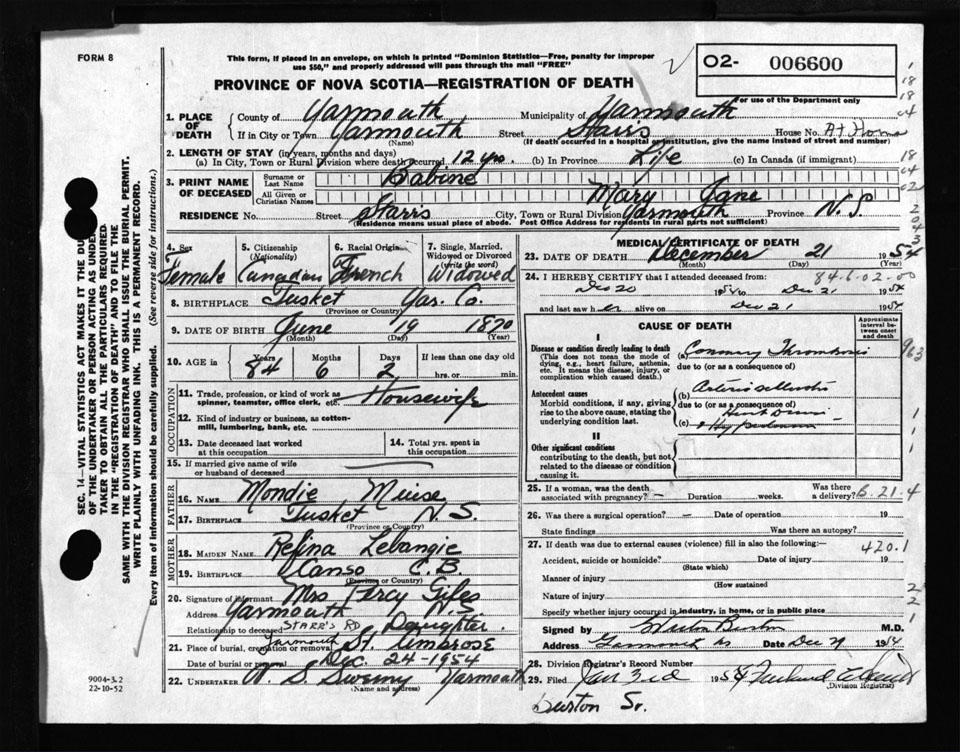 FORM 8
This form, if placed in an envelope, on which is printed "Dominion Statistics—Free, penalty for improper
use $50," and properly addressed will pass through the mail "FREE"
O2- 006600
PROVINCE OF NOVA SCOTIA—REGISTRATION OF DEATH
For use of the Department only
1. PLACE OF DEATH
County of Yarmouth Municipality of Yarmouth
If in City or Town Yarmouth Street Starrs House No. At Home
(Name) (If death occurred in a hospital or institution, give name instead of street and number)
2. LENGTH OF STAY (in years, months and days)
(a) In City, Town or Rural Division where death occurred 12 yrs. (b) In Province Life (c) In Canada (if immigrant)
3. PRINT NAME OF DECEASED
Surname or Last Name Babine
All Given or Christian Names Mary Jane
RESIDENCE No. Street Starrs City, Town or Rural Division Yarmouth Province N.S.
(Residence means usual place of abode. Post Office Address for residents in rural parts not sufficient)
4. Sex Female
5. Citizenship (Nationality) Canadian
6. Racial Origin French
7. Single, Married, Widowed or Divorced (Write the word) Widowed
8. BIRTHPLACE Tusket Yar. Co.
(Province or Country)
9. DATE OF BIRTH June 19 1870
(Month) (Day) (Year)
10. AGE in Years 84 Months 6 Days 2 If less than one day old
hrs. or min.
OCCUPATION
11. Trade, profession, or kind of work as
spinner, teamster, office clerk, etc. Housewife
12. Kind of industry or business, as cotton-
mill, lumbering, bank, etc.
13. Date deceased last worked
at this occupation
14. Total yrs. spent in
this occupation
15. If married give name of wife
or husband of deceased
FATHER
16. NAME Mondie Muise
17. BIRTHPLACE Tusket N.S.
(Province or Country)
MOTHER
18. MAIDEN NAME Refina Lebangie
19. BIRTHPLACE Canso C.B.
(Province or Country)
20. Signature of informant Mrs Percy
Address Yarmouth N.S.
STARR'S RD
Relationship to deceased Daughter
21. Place of burial, cremation or removal Yarmouth St. Ambrose
Date of burial or removal Dec. 24-1954
22. UNDERTAKER Sweeny Yarmouth
(Name and address)
MEDICAL CERTIFICATE OF DEATH
23. DATE OF DEATH December 21 1954
(Month) (Day) (Year)
84.6.02.00
24. I HEREBY CERTIFY that I attended deceased from:
Dec 20 1954 to Dec 21 1954
and last saw her alive on Dec 21 1954
CAUSE OF DEATH
Approximate interval between onset and death
I
Disease or condition directly leading to death
(This does not mean the mode of
dying, e.g., heart failure, asthenia,
etc. It means the disease, injury, or
complication which caused death.)
(a) Coronary Thrombosis
due to (or as a consequence of)
Antecedent causes
Morbid conditions, if any, giving
rise to the above cause, stating the
underlying condition last.
(b) Arteriosclerotic
due to (or as a consequence of)
Heart
(c)
II
Other significant conditions
contributing to the death, but not
related to the disease or condition
causing it.
25. If a woman, was the death
associated with pregnancy? – Duration weeks. Was there
a delivery? B.21.4
26. Was there a surgical operation? – Date of operation 19
State findings Was there an autopsy?
27. If death was due to external causes (violence) fill in also the following:— 420.1
Accident, suicide or homicide? Date of injury 19
(State which)
Manner of injury
(How sustained
Nature of injury
Specify whether injury occurred in industry, in home, or in public place
Signed by Burton M.D.
Address Yarmouth NS Date Dec 1954
28. Division Registrar's Record Number
29. Filed Jan 3rd
(Division Registrar)
Burton Sr.
SEC. 14—VITAL STATISTICS ACT MAKES IT THE DU
OF THE UNDERTAKER OR PERSON ACTING AS UNDER
TAKER TO OBTAIN ALL THE PARTICULARS REQUIRED
IN THE "REGISTRATION OF DEATH" AND TO FILE THE
SAME WITH THE DIVISION REGISTRAR WHO SHALL ISSUE THE BURIAL PERMIT.
WRITE PLAINLY WITH UNFADING INK. THIS IS A PERMANENT RECORD.
Every item of information should be carefully supplied. (See reverse side for instructions.)
9004-3.2
22-10-52